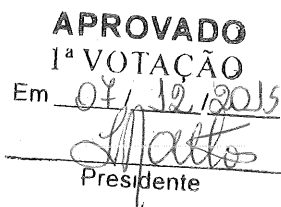 APROVADO
1ª VOTAÇÃO
Em 07/12/2015
Mattos
Presidente